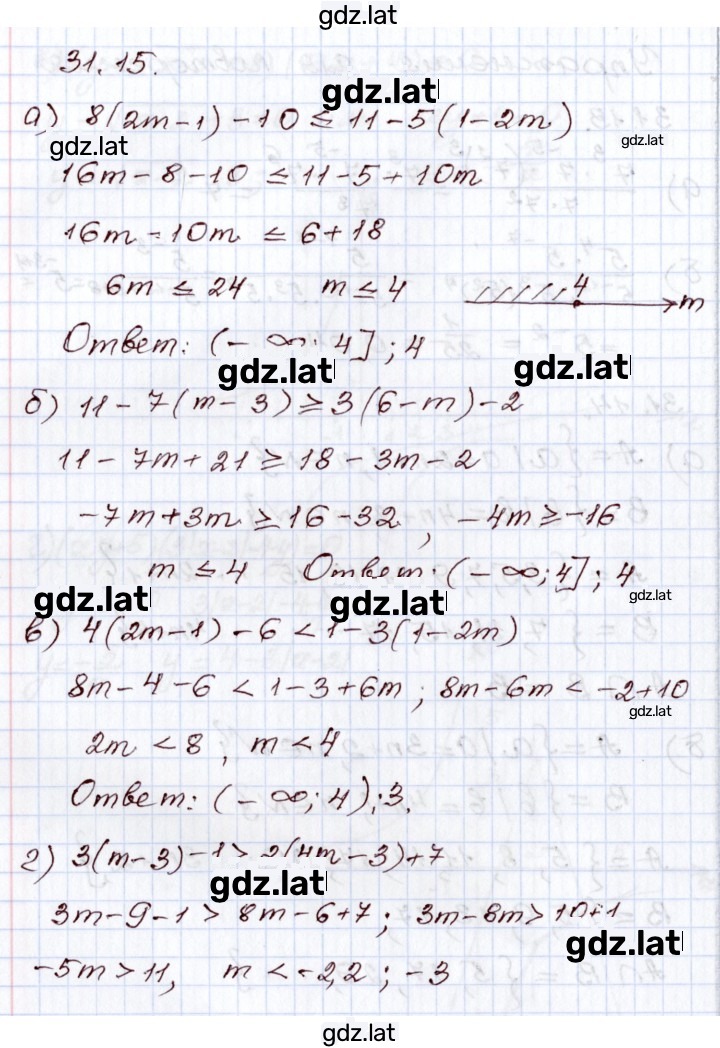 gdz.lat
31.15.
gdz.lat
а) 8(2m-1)-10≤11-5(1-2m)
gdz.lat
gdz.lat
16m-8-10≤11-5+10m
16m-10m≤6+18
6m≤24 m≤4 4 m
Ответ: (-∞; 4]; 4
gdz.lat
gdz.lat
б) 11-7(m-3)≥3(6-m)-2
11-7m+21≥18-3m-2
-7m+3m≥16-32, -4m≥-16
m≤4 Ответ: (-∞; 4]; 4
gdz.lat
gdz.lat
gdz.lat
в) 4(2m-1)-6<1-3(1-2m)
8m-4-6<1-3+6m; 8m-6m<-2+10
gdz.lat
2m<8, m<4
Ответ: (-∞; 4); 3.
г) 3(m-3)-1>2(4m-3)+7
gdz.lat
3m-9-1>8m-6+7; 3m-8m>10+1
gdz.lat
-5m>11, m<-2,2; -3
gdz.lat